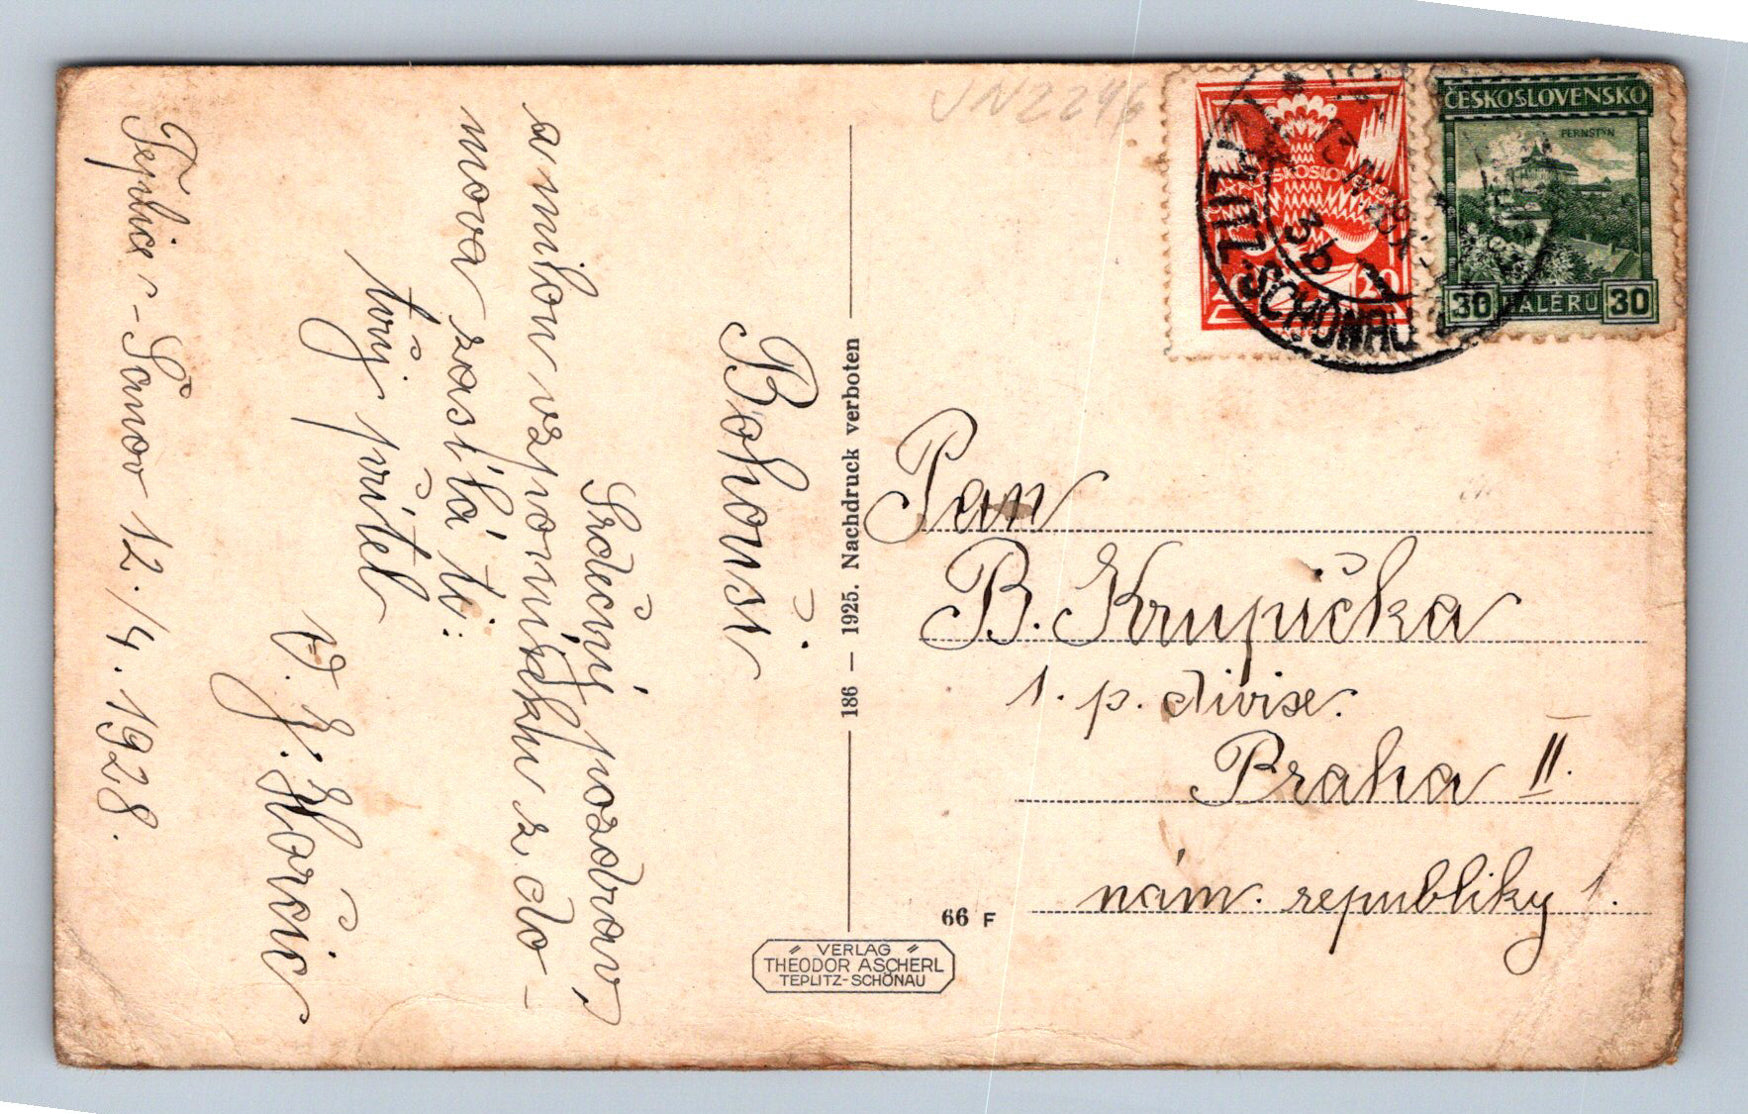 JN2246
ČESKOSLOVENSKO
PERNSTYN
30 HALÉŘŮ 30
20
TEPLITZ-SCHÖNAU
3b
Bohouši.
Srdečný pozdrav,
s milou vzpomínkou z do-
mova zasílá ti:
tvůj přítel
V. J. Hořic
Teplice - Šanov 12./4. 1928.
186 — 1925. Nachdruck verboten
Pan
B. Krupička
1. p. divise.
Praha II.
nám. republiky 1.
66 F
VERLAG
THEODOR ASCHERL
TEPLITZ-SCHÖNAU